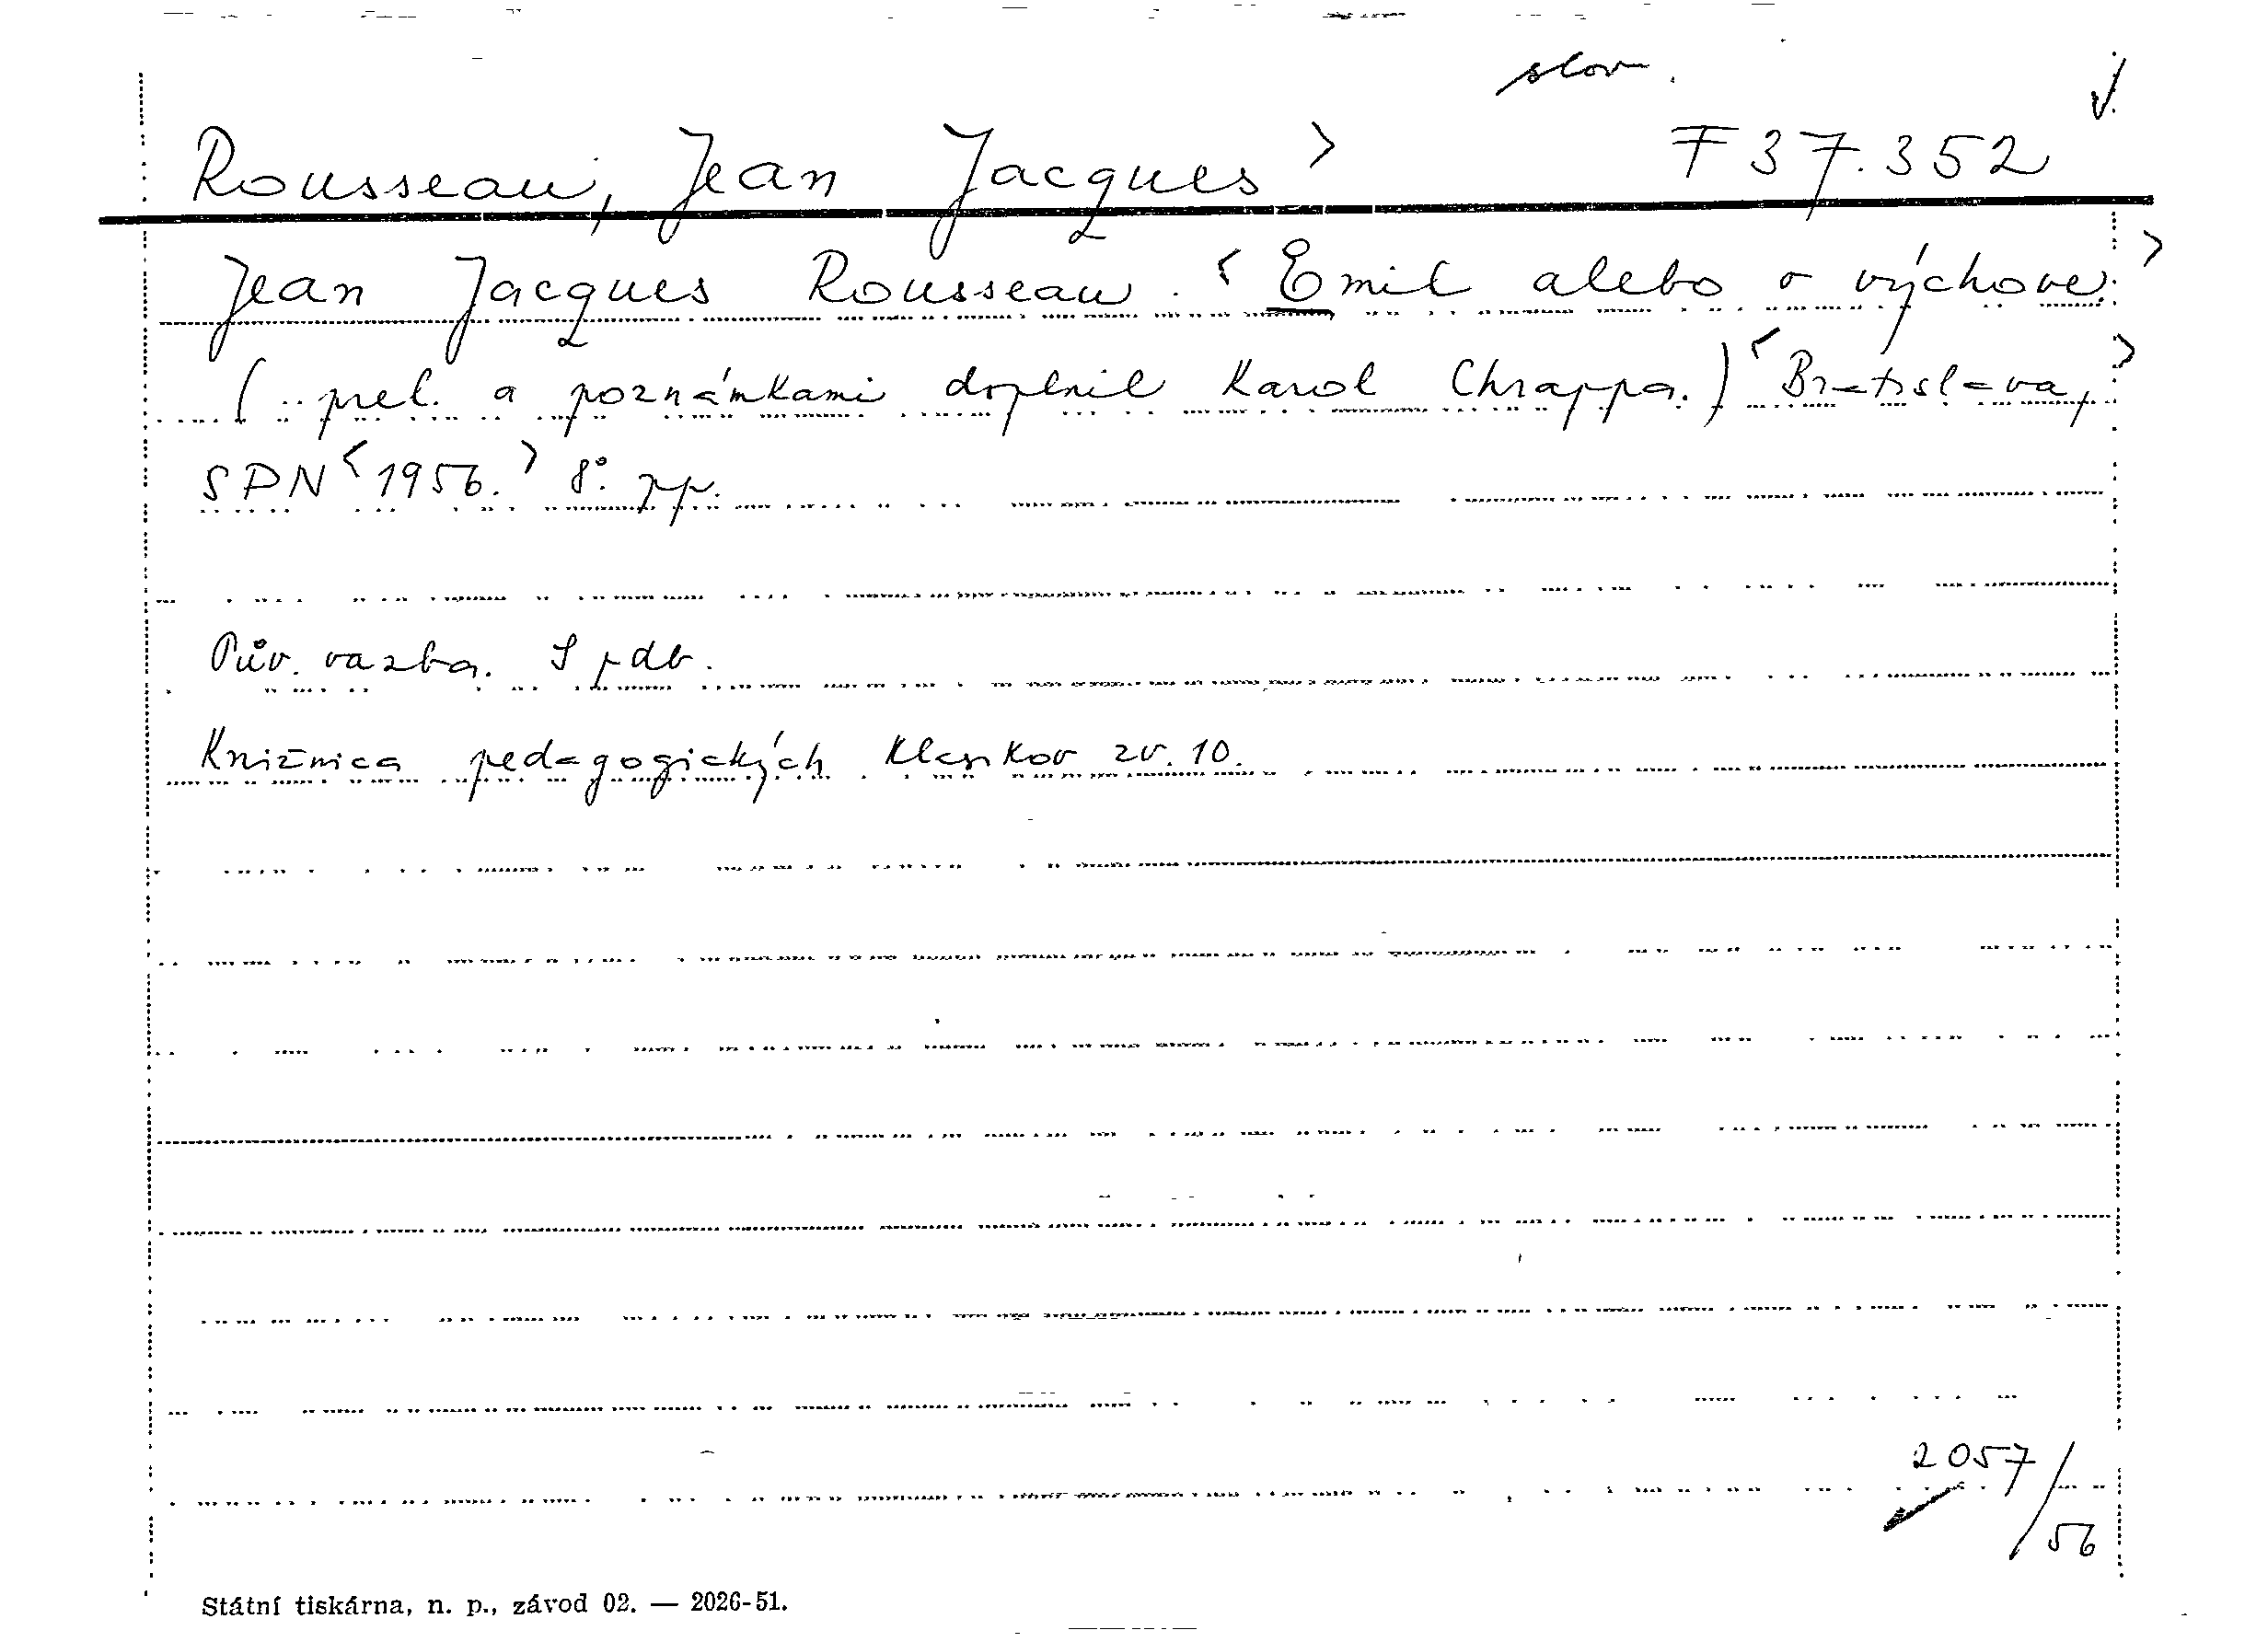 slov.
Rousseau, Jean Jacques> F 37.352
Jean Jacques Rousseau. <Emil alebo o výchove.>
(..prel. a poznámkami doplnil Karol Chrappa.) <Bratislava,>
SPN <1956.> 8°. pp.
Pův. vazba. S pdb.
Knižnica pedagogických klasikov zv. 10.
2057/56
Státní tiskárna, n. p., závod 02. — 2026-51.